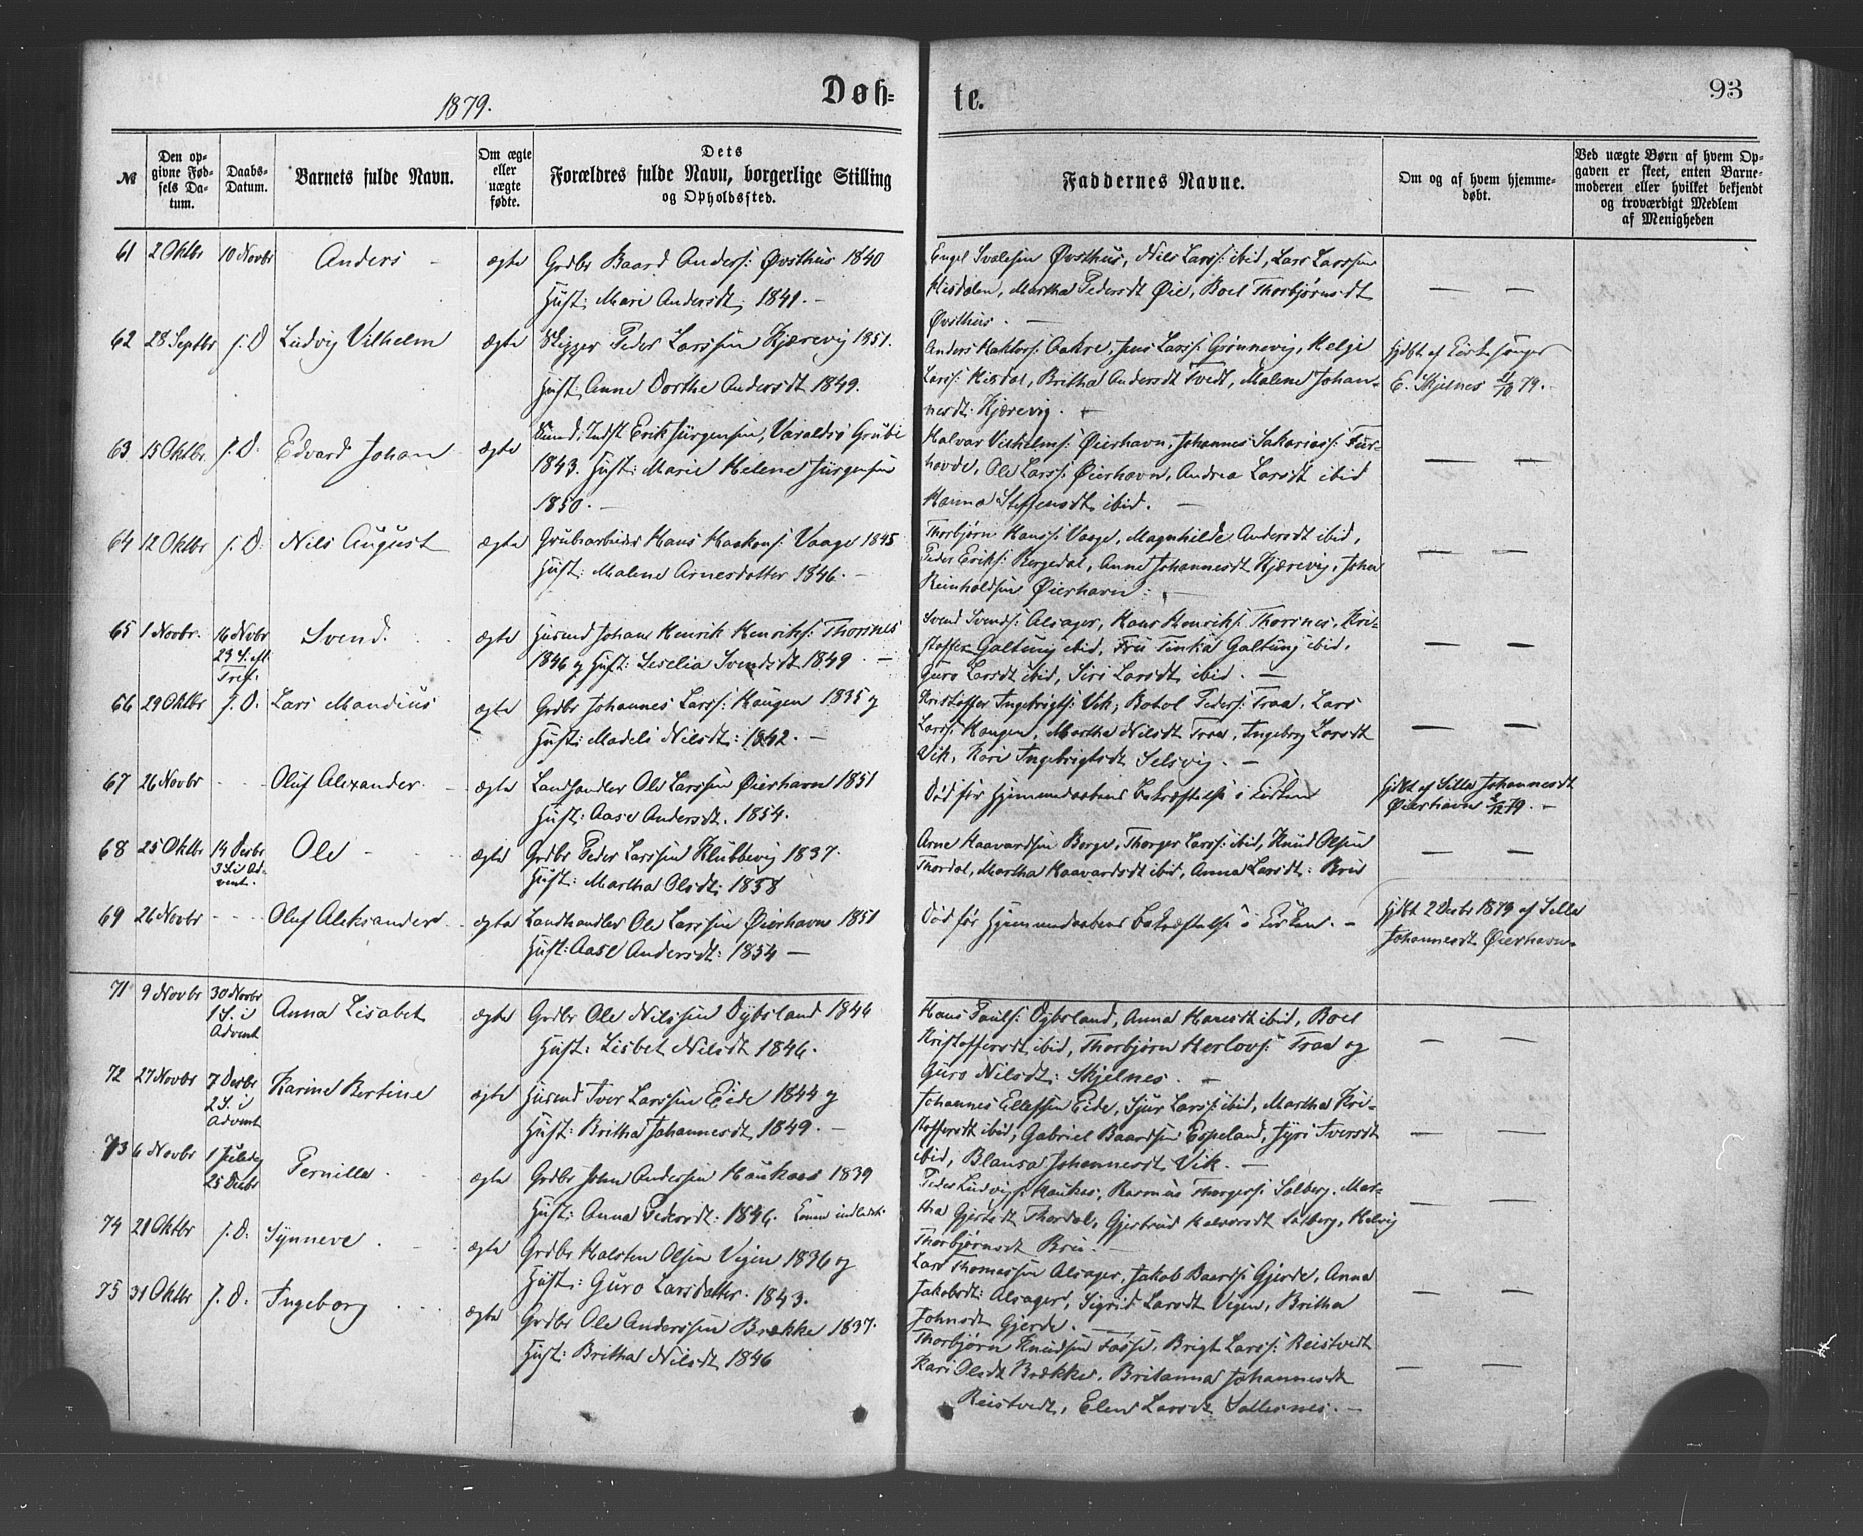 1879.
Døb-
te.
93
№
Den op-
givne Fød-
sels Da-
tum.
Daabs-
Datum.
Barnets fulde Navn.
Om ægte
eller
uægte
fødte.
Dets
Forældres fulde Navn, borgerlige Stilling
og Opholdssted.
Faddernes Navne.
Om og af hvem hjemme-
døbt.
Ved uægte Børn af hvem Op-
gaven er skeet, enten Barne-
moderen eller hvilket bekjendt
og troværdigt Medlem
af Menigheden
61 2 Oktbr 10 Novbr Anders - ægte Grdbr Baard Anders: Øvsthus 1840
Hust: Mari Andersdt. 1841. -
Engel Svalesen Øvsthus, Nils Larss: ibid, Lars Larssen
Hisdalen, Martha Pedersdt Øie, Boel Thorbjørnsdt
Øvsthus. -
62 28 Septbr s. D Ludvig Vilhelm ægte Peder Larssen Kjærevig 1851.
Hust: Anne Dorthe Andersdt 1849.
Anders Aakre, Jens Larss: Grønnevig, Helje
Larss: Hisdal, Britha Andersdt Tvedt, Malene Johan-
nesdt: Kjærevig.
E. Skjelnes 79.
63 15 Oktbr. s. D. Edvard Johan ægte Erik Jürgensen, Varaldsø Grube
1843. Hust: Marie Helene Jürgensen
1850. -
Halvar Vilhelms: Øierhavn, Johannes Sakarias: Fur-
hovde, Ole Larss: Øierhavn, Andrea Larsdt ibid
Hanna Steffensdt ibid. -
64 12 Oktbr s. D. Nils August ægte Grubearbeider Hans Haakons: Vaage 1845
Hust: Malene Arnesdatter 1846. -
Thorbjørn Hanss: Vaage, Magnhilde Andersdt ibid,
Peder Eriks: Bergedal, Anne Johannesdt Kjærevig, John
Reinholdsen Øierhavn.
65 1 Novbr. 16 Novbr Svend. ægte Husmd Johan Henrik Henriks: Thorsnes
23 S. eft
Tref.
1846 og Hust: Seselia Svendsdt 1849. -
Svend Svends: Alsager, Hans Henriks: Thorsnes, Kri-
stoffer Galtung ibid, Fru Tinka Galtung ibid,
Guro Larsdt ibid, Siri Larsdt ibid. -
66 29 Oktbr s. D. Lars Mandius ægte Grdbr Johannes Larss: Haugen 1835 og
Hust: Madeli Nilsdt: 1842. -
Kristoffer Ingebrigts: Vik, Botol Peders: Traa, Lars
Larss: Haugen, Martha Nilsdt Traa, Ingeborg Larsdt
Vik, Kari Ingebrigtsdt Selsvig. -
67 26 Novbr - - Oluf Alexander. - ægte Landhandler Ole Larssen Øierhavn 1851
Hust: Aase Andersdt. 1854.
Død før Hjemmedaabens bekræftelse i Kirken
Hjdbt af Silla Johannesdt
Øierhavn 2/12 79. -
68 25 Oktbr 14 Decbr Ole - ægte Grdbr Peder Larssen Klubbevig 1837.
3 S. i Ad-
vent.
Hust: Martha Olsdt: 1838
Arne Haavardsen Berge, Thorger Larss: ibid, Knud Olsen
Thordal, Martha Haavardsdt ibid, Anna Larsdt: Brei
69 26 Novbr - - - Oluf Aleksander - ægte Landhandler Ole Larssen Øierhavn 1851
Hust: Aase Andersdt: 1854 -
Død før Hjemmedaabens bekræftelse i Kirken. -
Hjdbt 2 Decbr 1879 af Silla
Johannesdt Øierhavn -
71 9 Novbr 30 Novbr Anna Lisabet ægte Grdbr Ole Nilssen Dybsland 1844
1 S. i
Advent
Hust: Lisbet Nilsdt 1846.
Hans Pouls: Dybsland, Anna Hansdt ibid, Boel
Kristoffersdt ibid, Thorbjørn Herlovs: Traa og
Guro Nilsdt: Skjelnes. -
72 27 Novbr 7 Decbr Karine Bertine ægte Husmd Iver Larssen Eide 1844 og
2 S. i
Advent
Hust: Britha Johannesdt, 1849. -
Johannes Ellefsen Eide, Sjur Larss: ibid, Martha Kri-
stoffersdt ibid, Gabriel Baardsen Espeland, Jyri Iversdt
ibid, Blansa Johannesdt Vik. -
73 6 Novbr 1 Juledag Pernille. ægte Grdbr John Anderssen Haukaas 1839
25 Decbr
Hust: Anna Pedersdt: 1846.
Peder Ludvigs: Haukas, Rasmus Thorgers: Solberg. Mar-
tha Gjertsdt Thordal, Gjertrud Halvorsdt Solberg, Helvig
Thorbjørnsdt Brei. -
74 21 Oktbr s. D. Synneve. ægte Grdbr Halsten Olsen Vigen 1836 og
Hust: Guro Larsdatter. 1843.
Lars Thomassen Alsager, Jakob Baards: Gjerde, Anna
Jakobsdt: Alsager, Sigrid Larsdt Vigen, Britha
Johnsdt Gjerde. -
75 31 Oktbr s. D. Ingeborg ægte Grdbr Ole Anderssen Brække 1837.
Hust: Britha Nilsdt 1846
Thorbjørn Knudsen Fosse, Brigt Larss: Reistvedt
Kari Olsdt Brække, Britanna Johannesdt
Reistvedt, Elen Larsdt Sallesnes. -